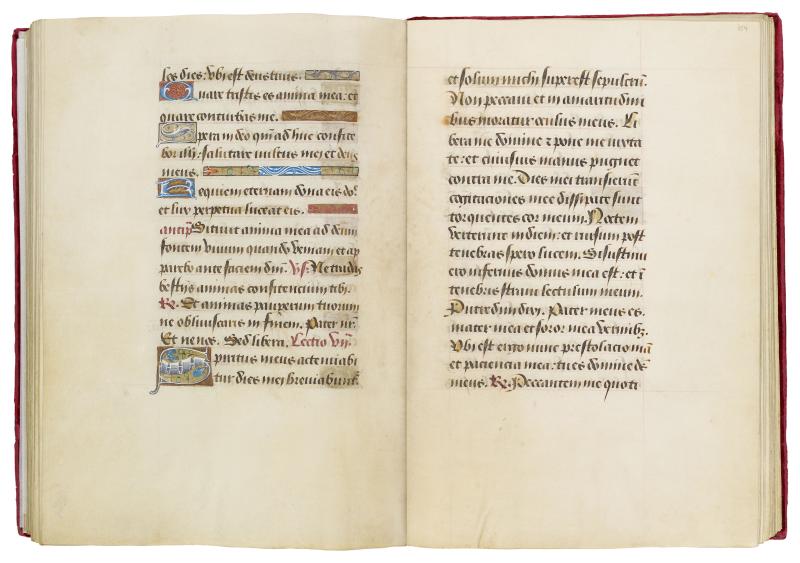 los dies: Vbi est deus tuus.
Quare tristis es anima mea: et
quare conturbas me.
Spera in deo qm̄ ad huc confite
bor illi: salutare vultus mei et deus
meus.
Requiem eternam dona eis do.
et lux perpetua luceat eis.
antip̄ Sitiuit anima mea ad deum
fontem viuum quando veniam et ap
parebo ante faciem dm̄. Vs. Ne tradas
bestijs animas confitencium tibi.
R̄e. Et animas pauperum tuorum
ne obliuiscaris in finem. Pater nr̄.
Et ne nos. Sed libera. Lectio vij.
Spiritus meus attenuabi
tur dies mei breuiabunt̄
et solum michi superest sepulcrū.
Non peccaui et in amaritudini
bus moratur oculus meus. Li
bera me domine ⁊ pone me iuxta
te: et cuiusuis manus pugnet
contra me. Dies mei transierūt
cogitaciones mee dissipate sunt
torquentes cor meum. Noctem
verterunt in diem: et rursum post
tenebras spero lucem. Si sustinu
ero infernus domus mea est: et ī
tenebris straui lectulum meum.
Putredini dixi. Pater meus es.
mater mea et soror mea vermibꝫ.
Vbi est ergo nunc prestolacio mā
et paciencia mea: tu es domine ds̄
meus. R̄e. Peccantem me quoti